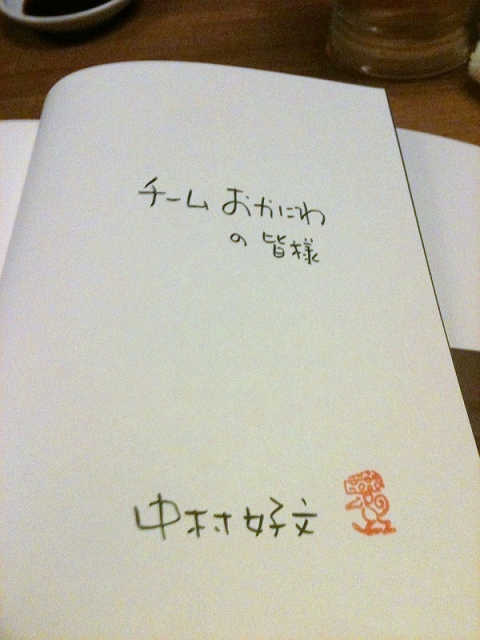 チーム おかにわ
の 皆様
中村好文